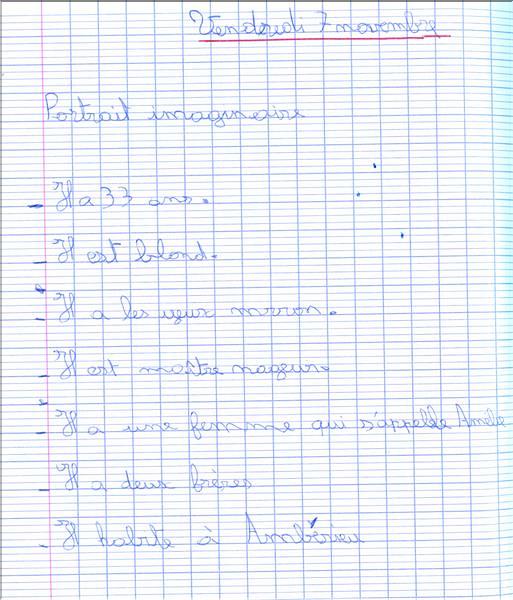 Vendredi 7 novembre
Portrait imaginaire
- Il a 33 ans.
- Il est blond.
- Il a les yeux marron.
- Il est maître nageur.
- Il a une femme qui s'appelle Amelie
- Il a deux frères
- Il habite à Ambérieu